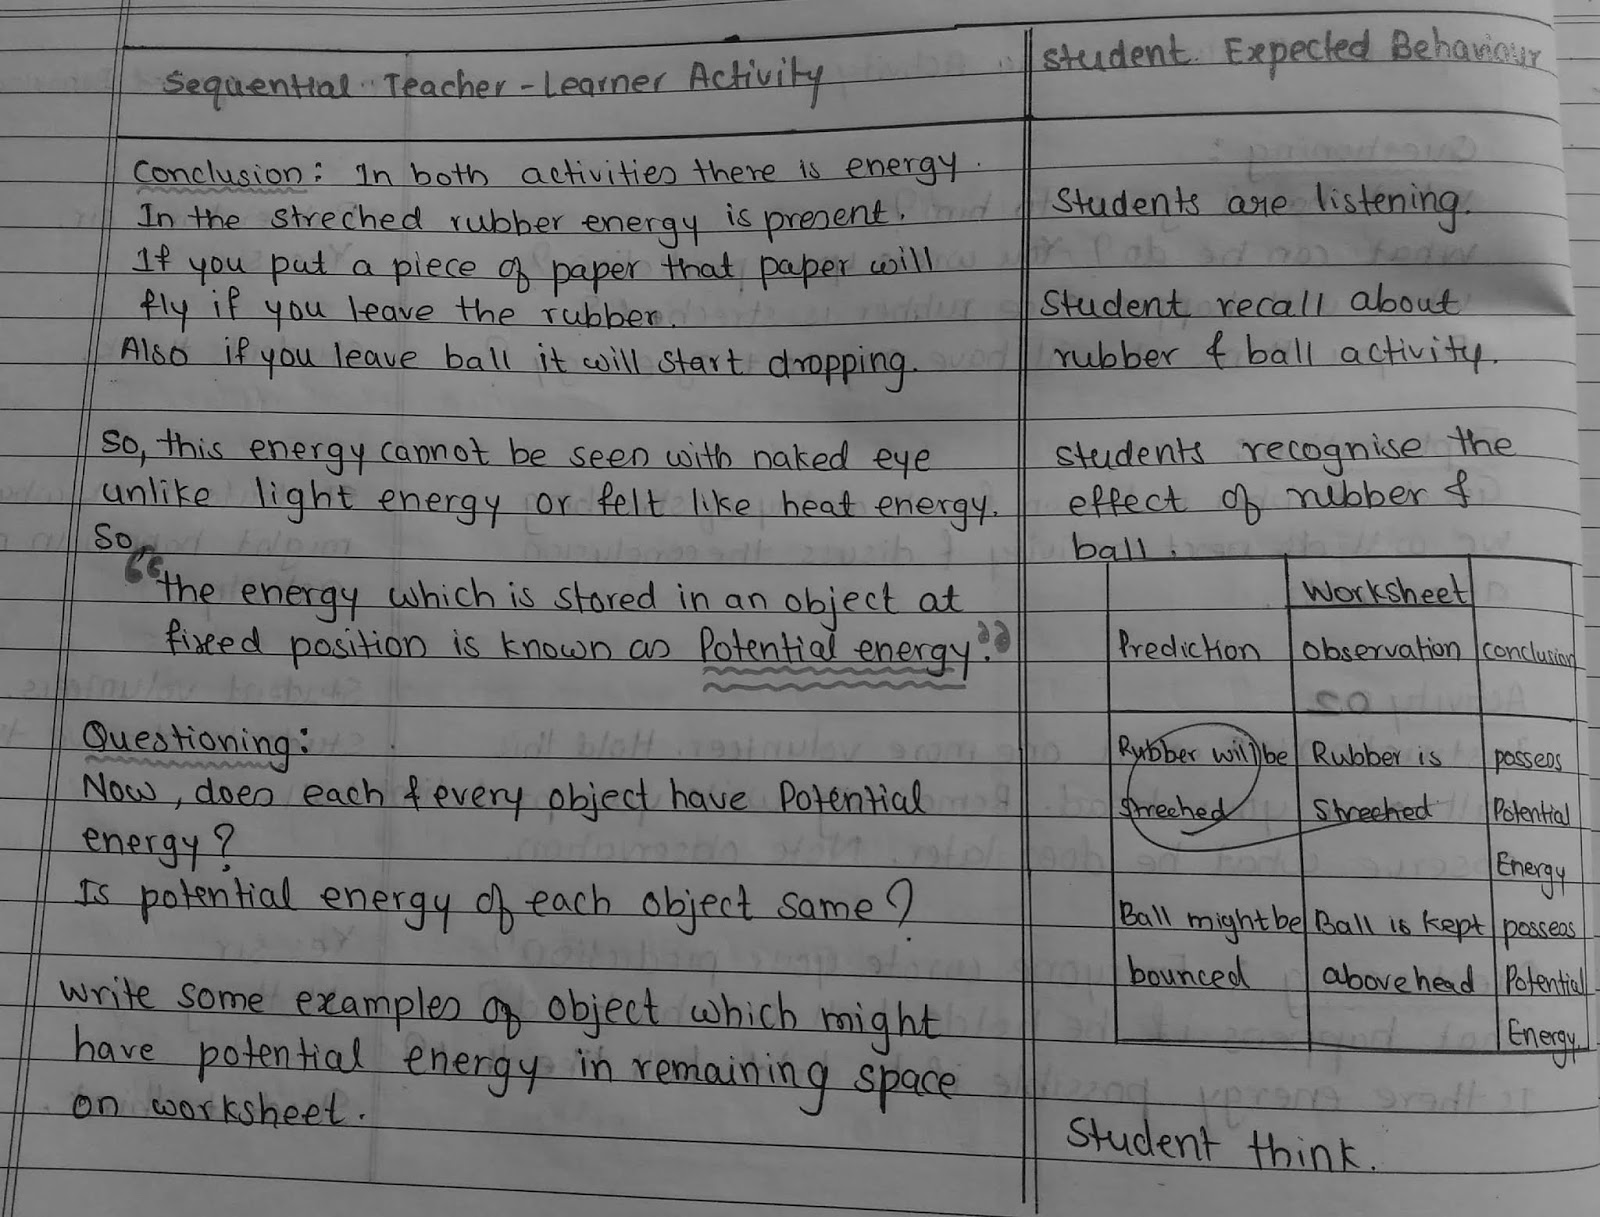 Sequential Teacher-Learner Activity
Conclusion: In both activities there is energy.
In the streched rubber energy is present.
If you put a piece of paper that paper will
fly if you leave the rubber.
Also if you leave ball it will start dropping.
So, this energy cannot be seen with naked eye
unlike light energy or felt like heat energy.
So,
"the energy which is stored in an object at
fixed position is known as Potential energy."
Questioning:
Now, does each & every object have Potential
energy?
Is potential energy of each object same?
write some examples of object which might
have potential energy in remaining space
on worksheet.
Student Expected Behaviour
Students are listening.
Student recall about
rubber & ball activity.
Students recognise the
effect of rubber &
ball.
Worksheet
Prediction Observation conclusion
Rubber will be Rubber is posses
Streched Streched Potential
Energy
Ball might be Ball is kept posses
bounced above head Potential
Energy.
Student think.